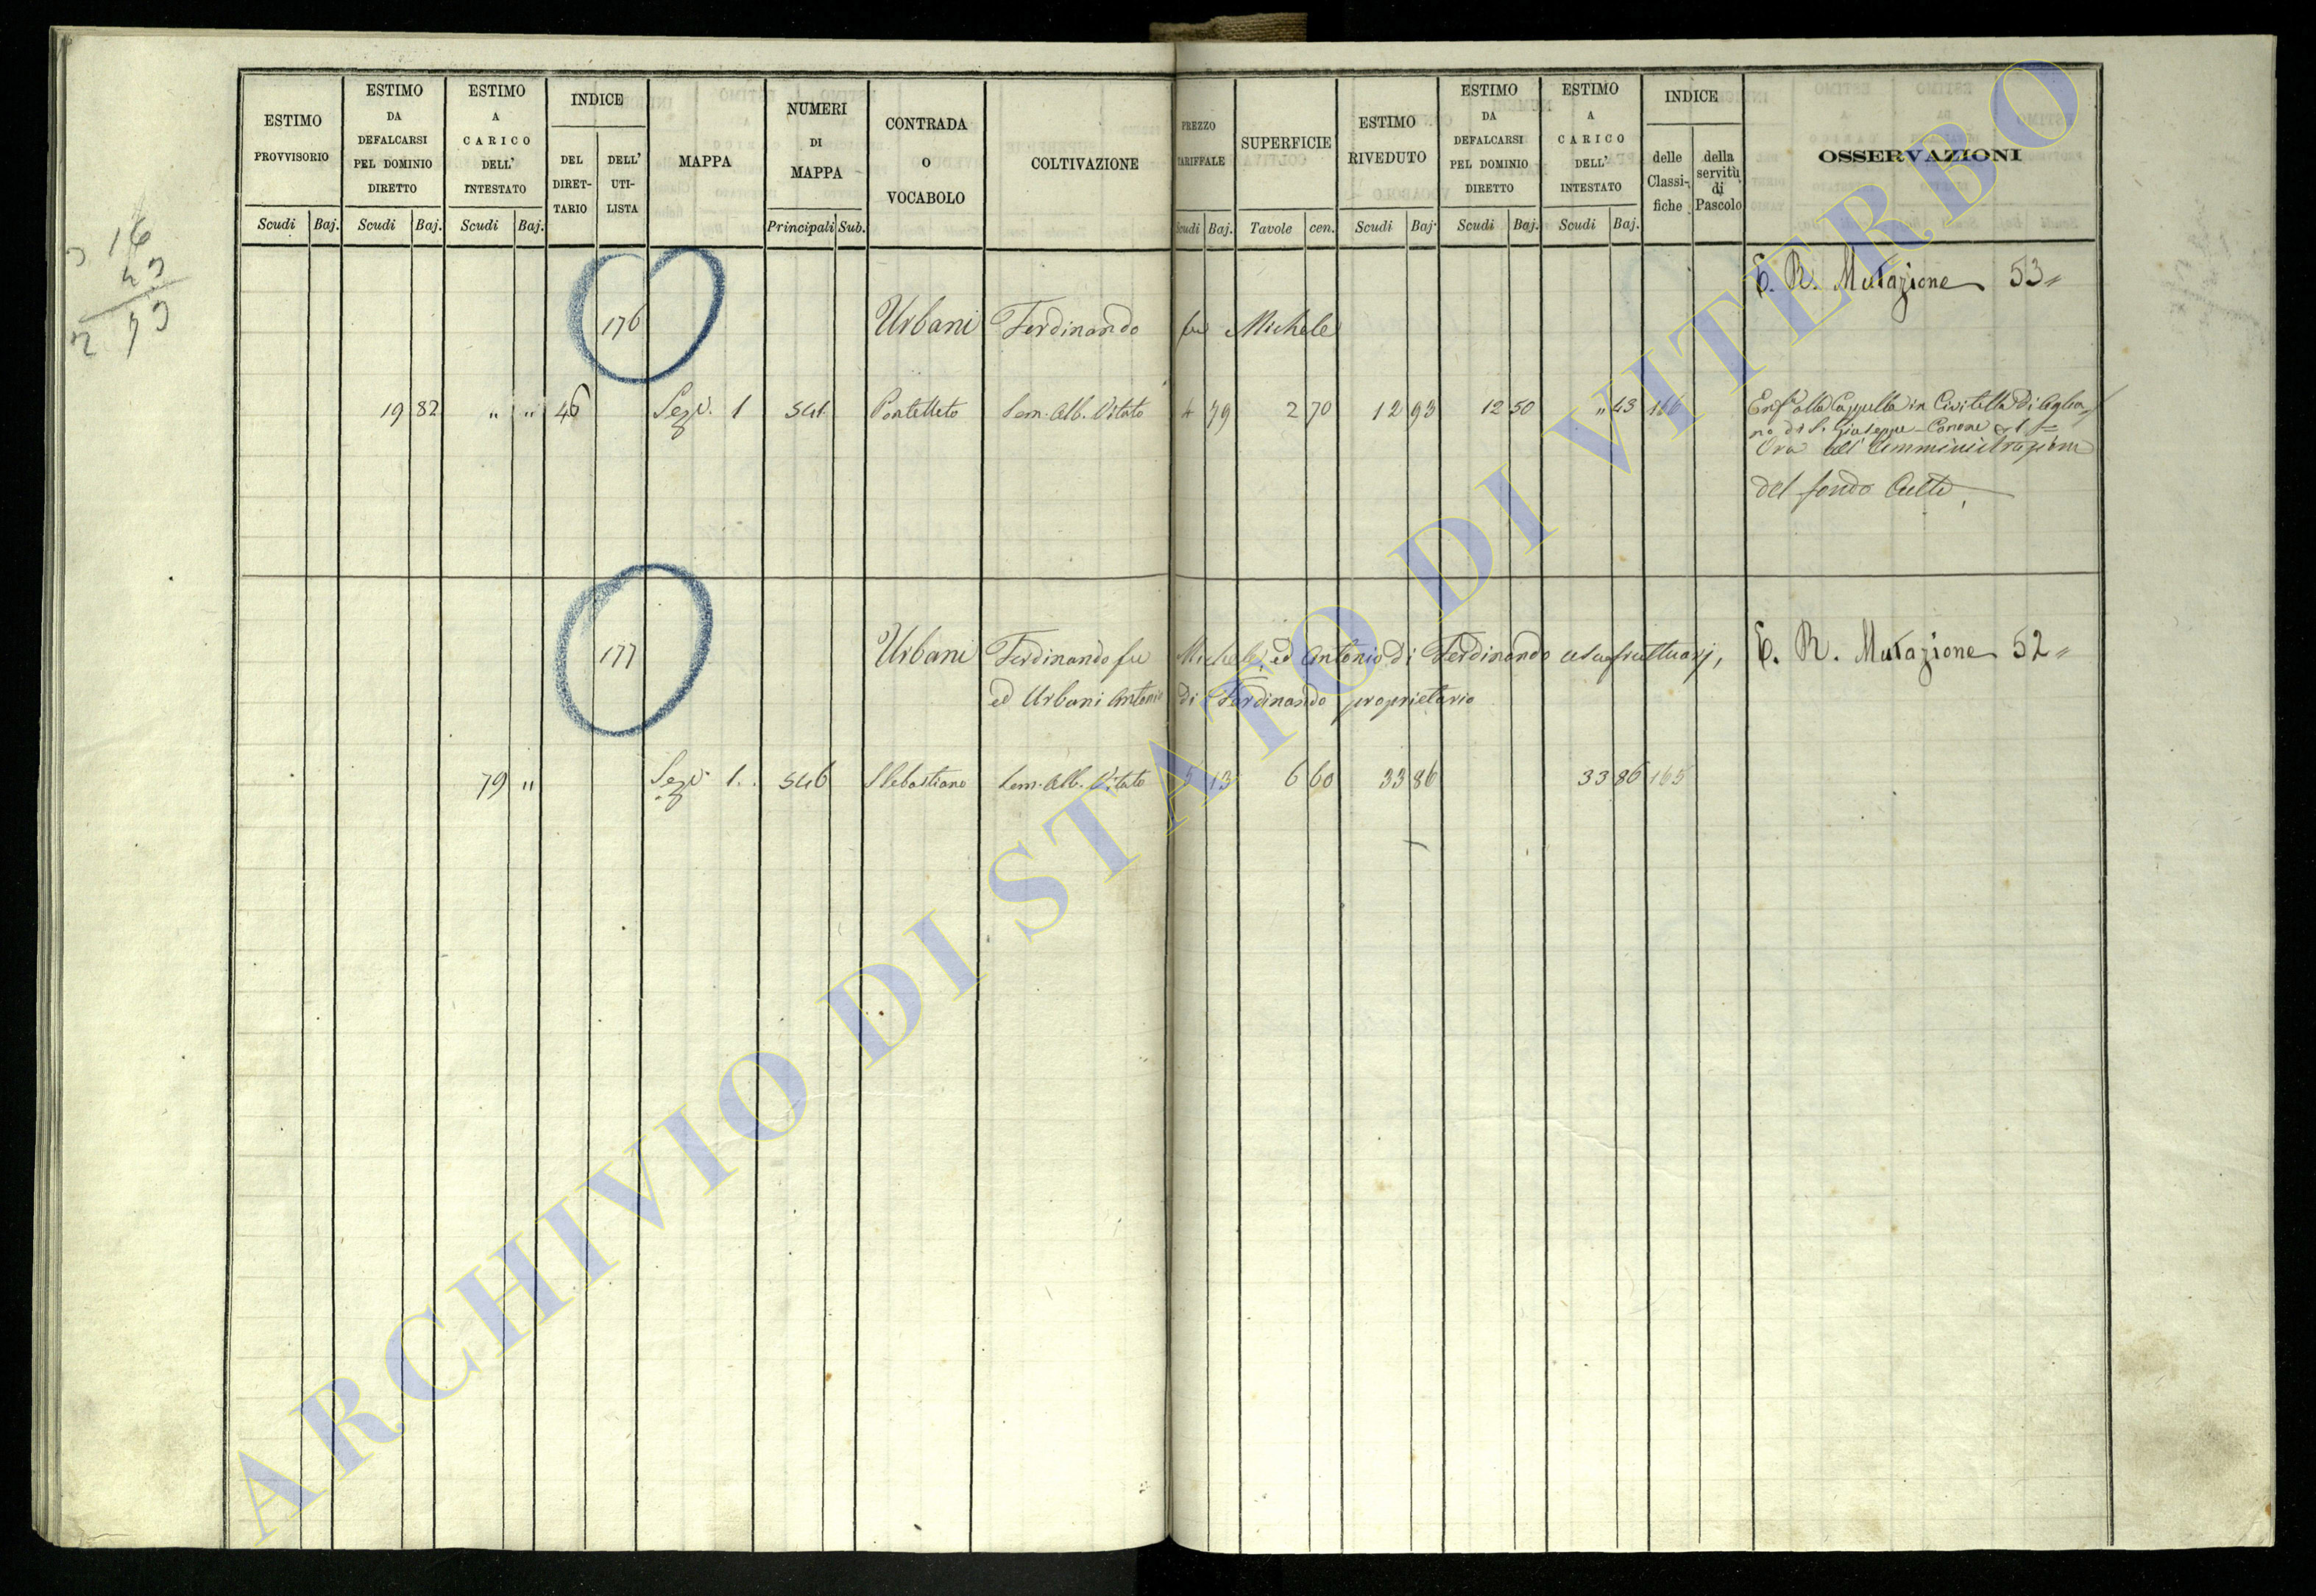 ESTIMO PROVVISORIO
Scudi Baj.
ESTIMO DA DEFALCARSI PEL DOMINIO DIRETTO
Scudi Baj.
ESTIMO A CARICO DELL' INTESTATO
Scudi Baj.
INDICE
DEL DIRET-TARIO
DELL' UTI-LISTA
MAPPA
NUMERI DI MAPPA
Principali Sub.
CONTRADA O VOCABOLO
COLTIVAZIONE
PREZZO TARIFFALE
Scudi Baj.
SUPERFICIE
Tavole cen.
ESTIMO RIVEDUTO
Scudi Baj.
ESTIMO DA DEFALCARSI PEL DOMINIO DIRETTO
Scudi Baj.
ESTIMO A CARICO DELL' INTESTATO
Scudi Baj.
INDICE
delle Classi-fiche
della servitù di Pascolo
OSSERVAZIONI
E. R. Mutazione 53 "
176 Urbani Ferdinando fu Michele
19 82 " " 46 Seze. 1 541 Pontelleto Sem. Alb. Vitato 4 79 2 70 12 93 12 50 " 43 166 Enfa alla Cappella in Civitella di Aglia-
no di S. Giuseppe - Canone
Ora all' Amministrazione
del fondo Culto
177 Urbani Ferdinando fu Michele, ed Antonio di Ferdinando usufruttuarj, E. R. Mutazione 52 "
ed Urbani Antonio di Ferdinando proprietario
79 " Seze. 1. 546 S Sebastiano Sem. Alb. Vitato 5 13 6 60 33 86 33 86 165
16
43
ARCHIVIO DI STATO DI VITERBO